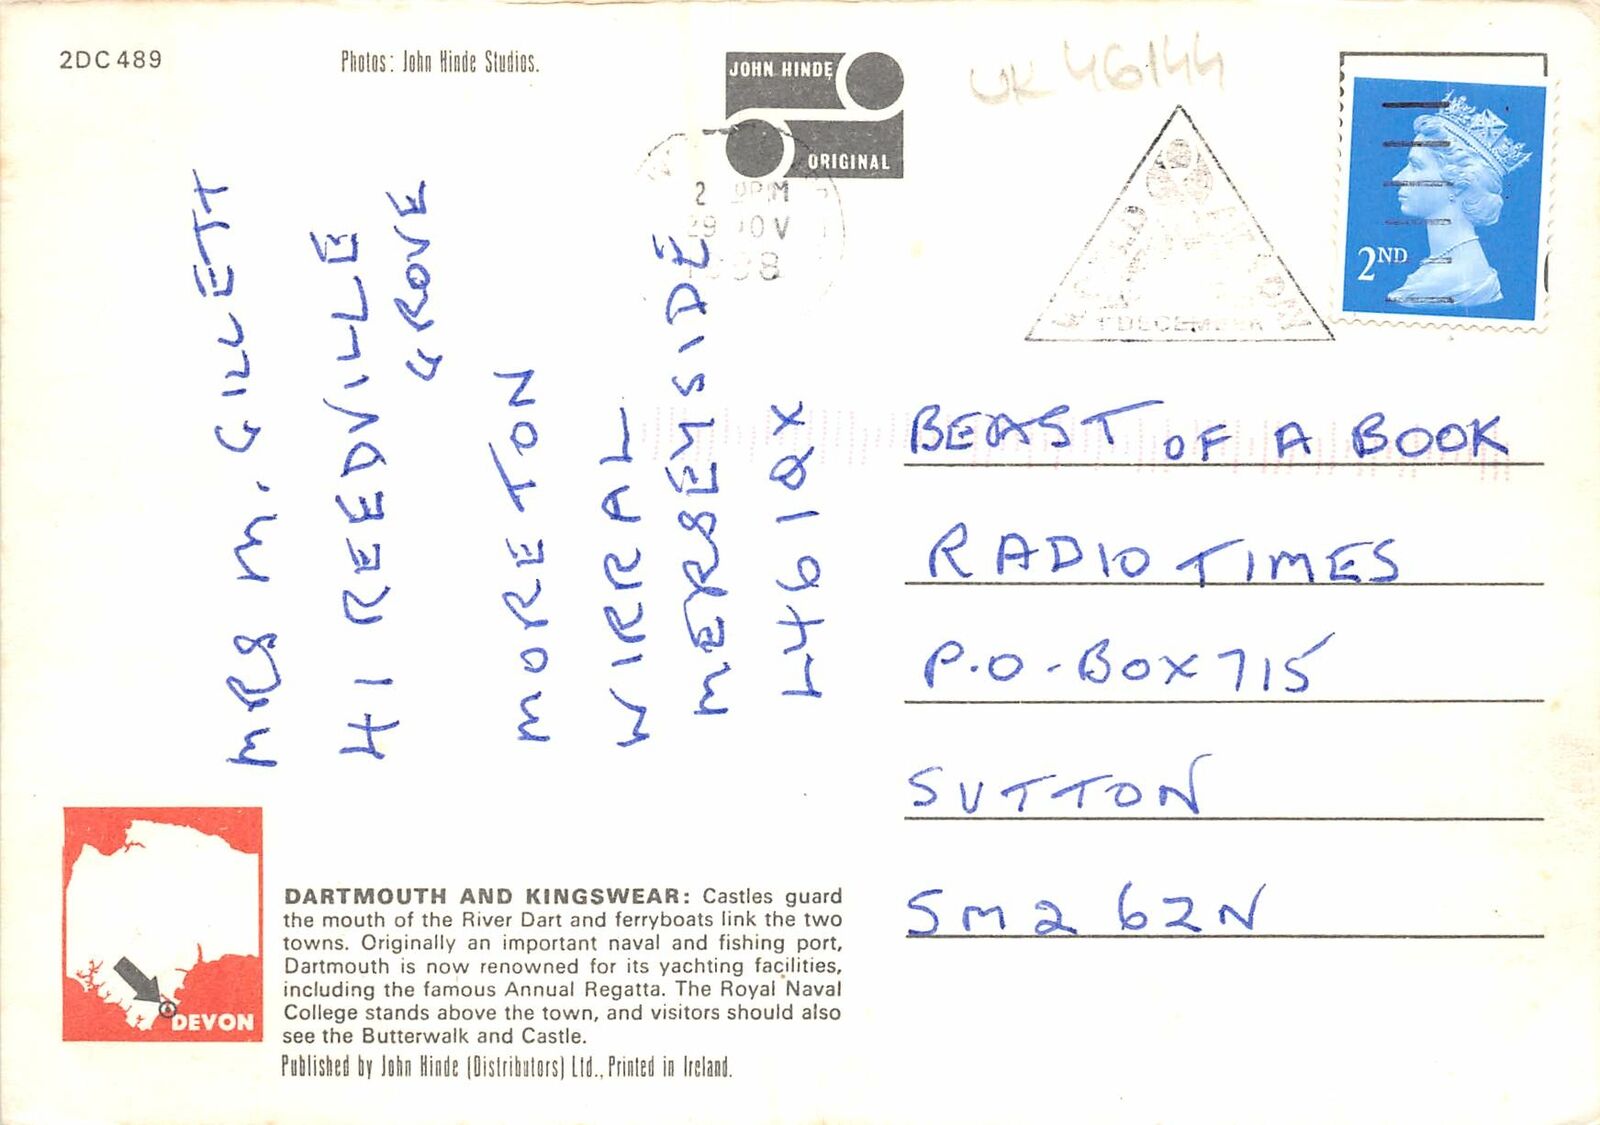 2DC489
Photos: John Hinde Studios.
JOHN HINDE
ORIGINAL
UK 46144
2 PM
29 NOV
1998
1 DECEMBER
2ND
MRS M. GILLETT
41 REEDVILLE
GROVE
MORETON
WIRRAL
MERSEYSIDE
L46 1QX
BEAST OF A BOOK
RADIO TIMES
P.O-BOX 715
SUTTON
SM2 6ZN
DEVON
DARTMOUTH AND KINGSWEAR: Castles guard
the mouth of the River Dart and ferryboats link the two
towns. Originally an important naval and fishing port,
Dartmouth is now renowned for its yachting facilities,
including the famous Annual Regatta. The Royal Naval
College stands above the town, and visitors should also
see the Butterwalk and Castle.
Published by John Hinde (Distributors) Ltd., Printed in Ireland.